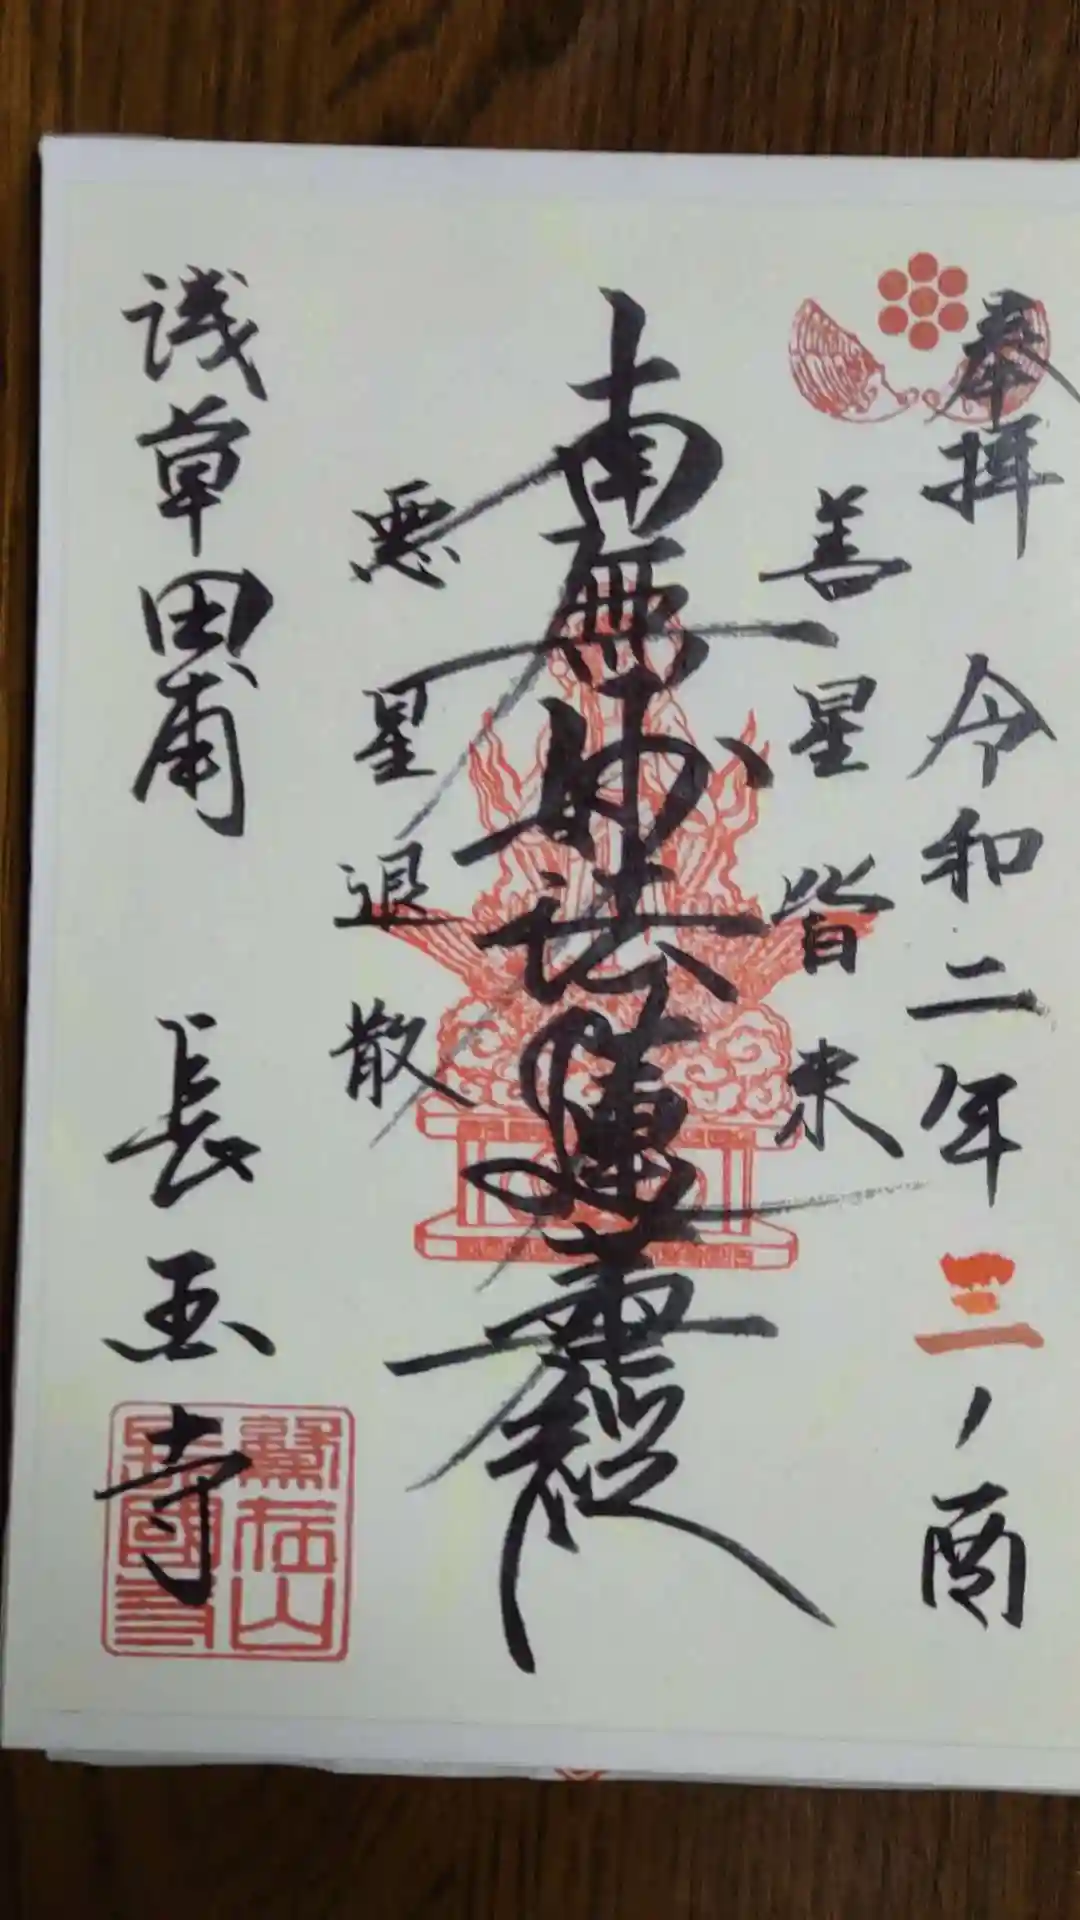 奉拝 令和二年 三ノ酉
善星皆来
南無妙法蓮華経
悪星退散
淺草田甫 長国寺
鷲在山
長國寺